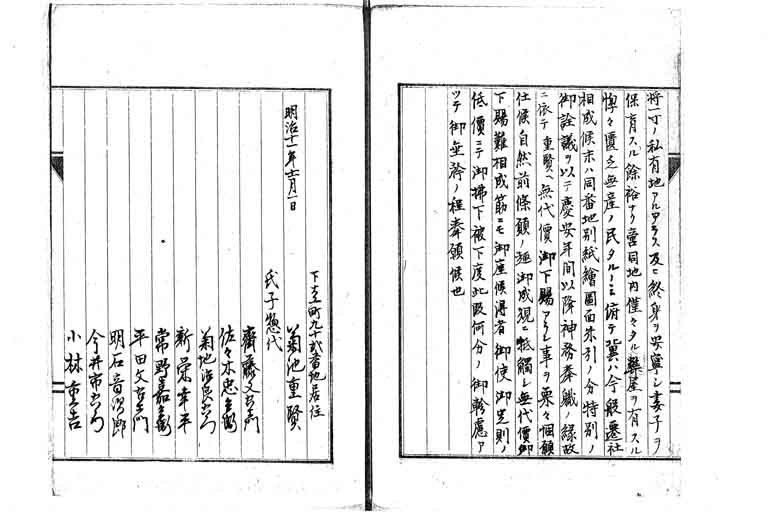 将一寸ノ私有地アルアラス及ヒ終身ヲ安寧シ妻子ヲ
保育スル餘裕ナク啻同地内僅々タル藁屋ヲ有スル
惸々匱乏無産ノ民タルノミ俯テ冀ハ今般遷社
相成候末ハ同番地別紙繪圖面朱引ノ分特別ノ
御詮議ヲ以テ慶安年間以降神務奉職ノ縁故
ニ依テ重賢ヘ無代價御下賜アラン事ヲ栗々個願
仕候自然前條願ノ趣御成規ニ牴觸シ無代價御
下賜難相成筋ニモ御座候得者御使御定則ノ
低價ニテ御拂下被下度此段何分ノ御軫慮ア
ツテ御垂矜ノ程奉願候也
明治十一年 月一日
下 町九十貳番地居住
菊池重賢
氏子惣代
齋藤又右衛門
佐々木忠兵衛
菊地 右衛門
新榮幸平
常野嘉兵衛
平田文右衛門
明石音次郎
今井市右衛門
小林重吉